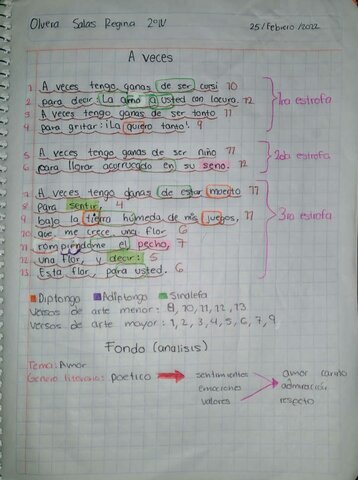 Olvera Salas Regina 2°IV
25/Febrero/2022
A veces
1. A veces tengo ganas de ser cursi 10
2. para decir: ¡La amo a usted con locura. 12
3. A veces tengo ganas de ser tonto 11
4. para gritar: ¡La quiero tanto! 9
1ra estrofa
5. A veces tengo ganas de ser niño 11
6. para llorar acurrucado en su seno. 12
2da estrofa
7. A veces tengo ganas de estar muerto 11
8. para sentir, 4
9. bajo la tierra húmeda de mis juegos, 11
10. que me crece una flor 6
11. rompiéndome el pecho, 7
12. una flor, y decir: 5
13. Esta flor, para usted. 6
3ra estrofa
Diptongo Adiptongo Sinalefa
Versos de arte menor: 8, 10, 11, 12, 13
Versos de arte mayor: 1, 2, 3, 4, 5, 6, 7, 9
Fondo (analisis)
Tema: Amor
Genero literario: poetico
sentimientos
emociones
valores
amor cariño
admiración
respeto